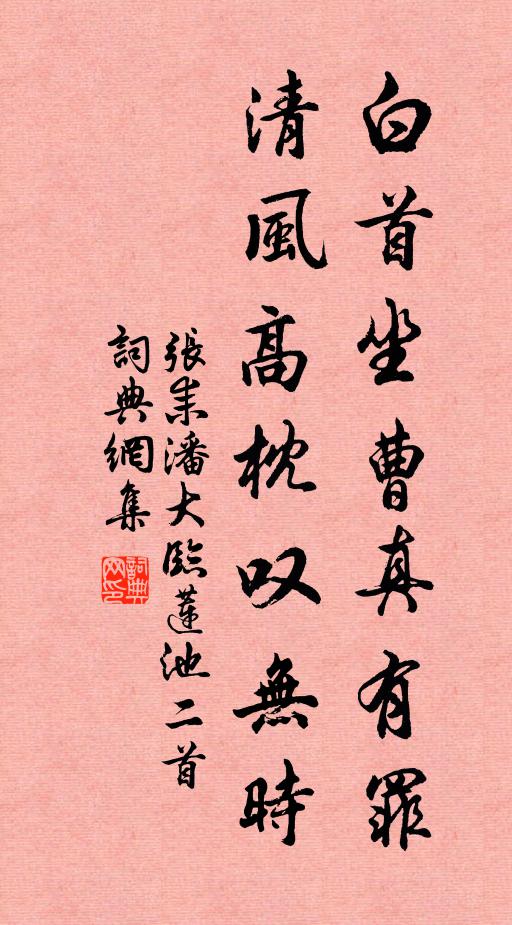 白首坐曹真有罪
清風高枕叹無時
張耒潘大臨蓮池二首
詞典網集
詞典网印